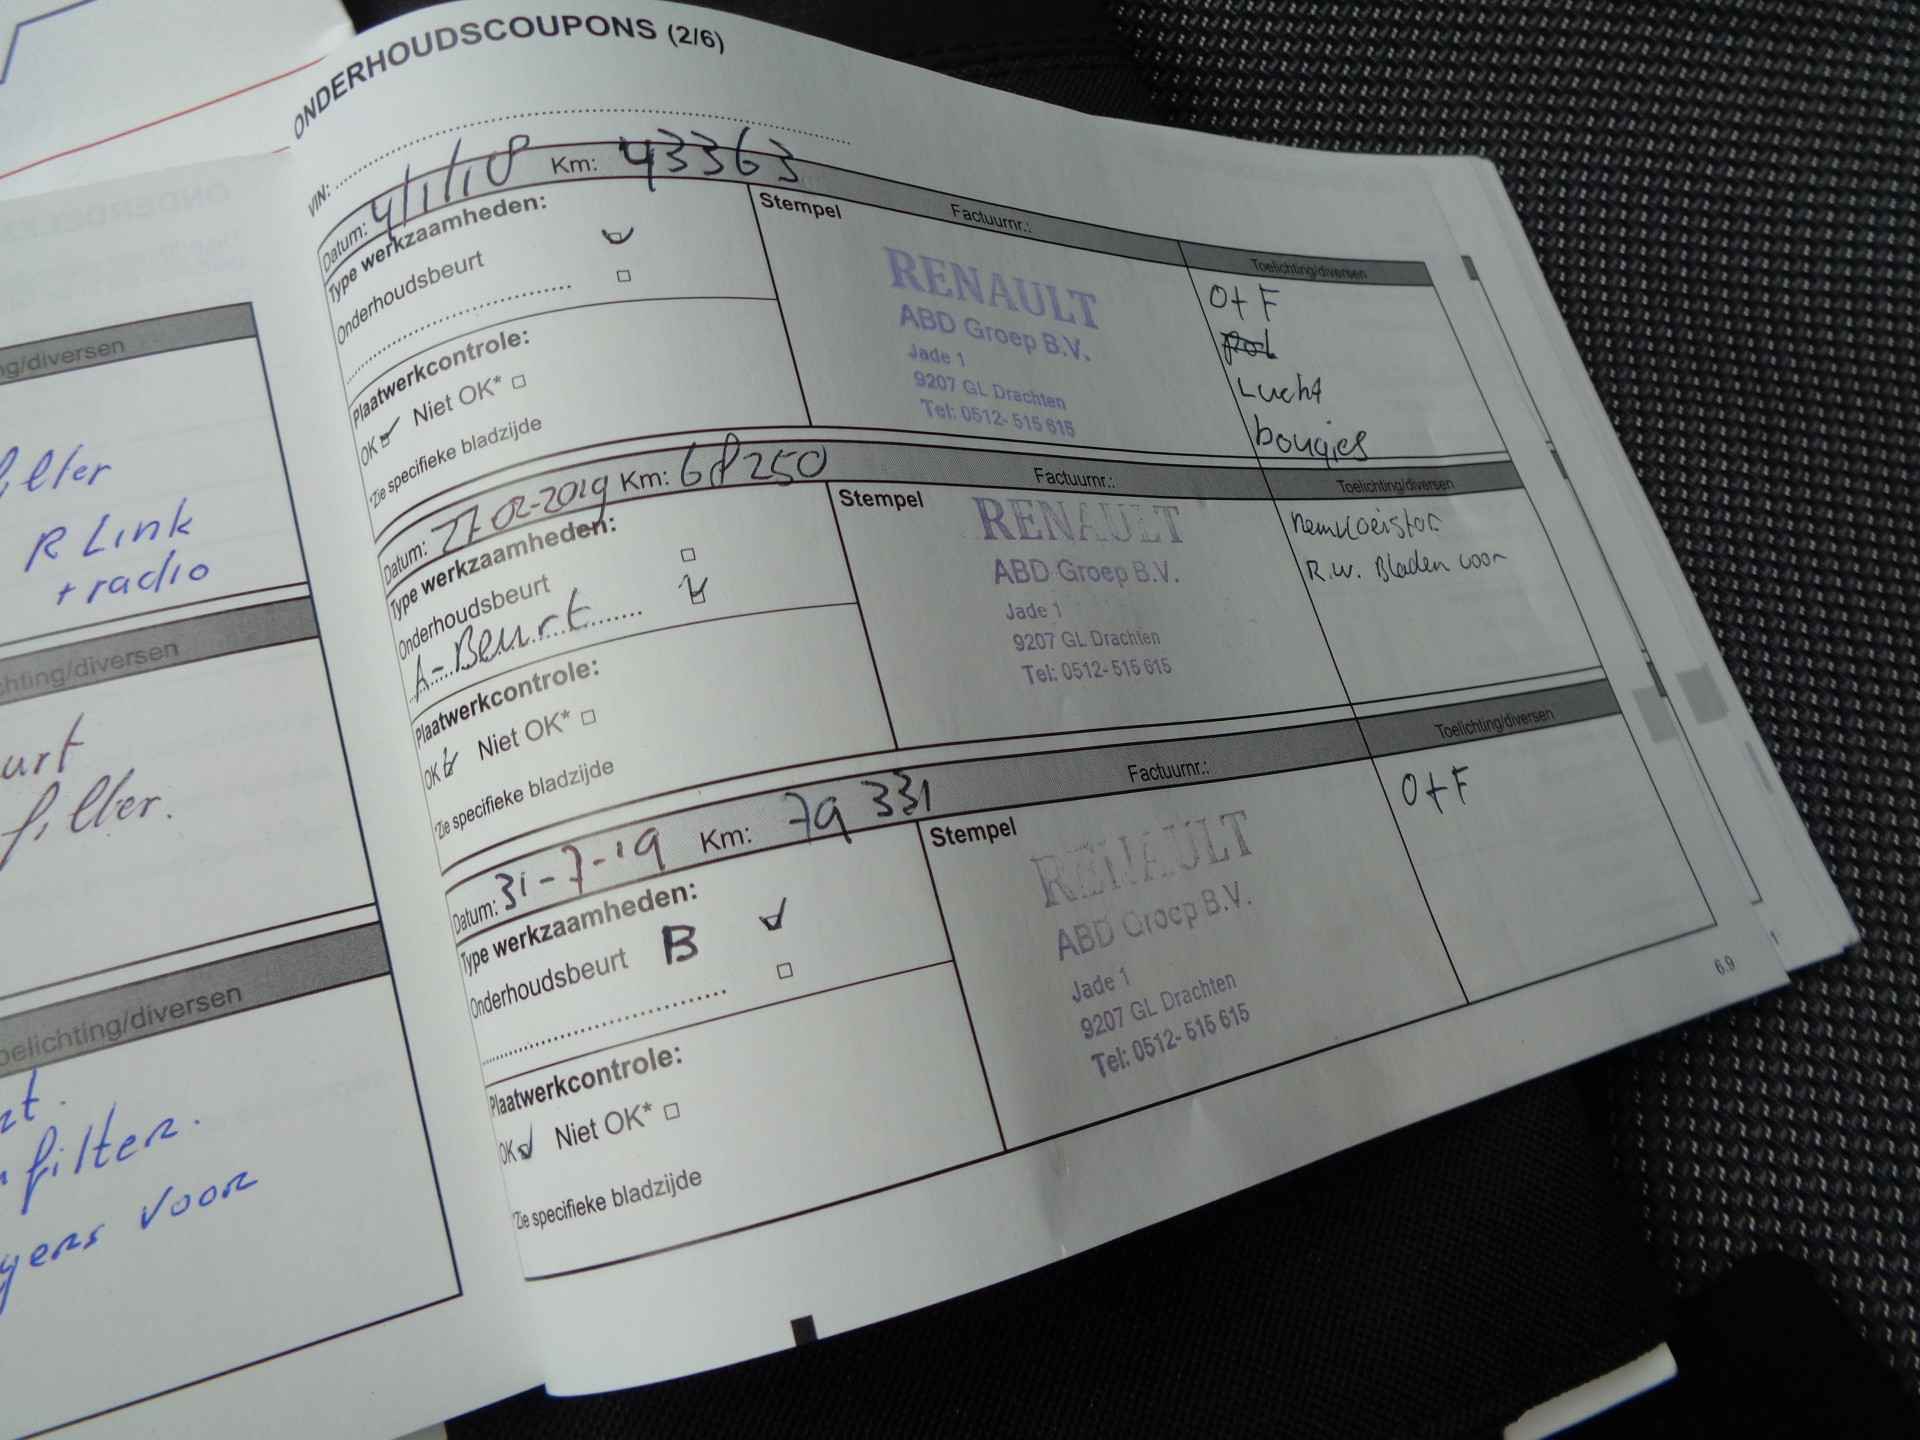 ONDERHOUDSCOUPONS (2/6)
VIN:
Datum: 4/1/18 Km: 43363 Factuurnr.: Toelichting/diversen
Type werkzaamheden:
Onderhoudsbeurt
Plaatwerkcontrole:
OK Niet OK*
*Zie specifieke bladzijde
Stempel
RENAULT
ABD Groep B.V.
Jade 1
9207 GL Drachten
Tel: 0512- 515 615
O+F
Lucht
bougies
Datum: 27-02-2019 Km: 68250 Factuurnr.: Toelichting/diversen
Type werkzaamheden:
Onderhoudsbeurt
A-Beurt
Plaatwerkcontrole:
OK Niet OK*
*Zie specifieke bladzijde
Stempel
RENAULT
ABD Groep B.V.
Jade 1
9207 GL Drachten
Tel: 0512- 515 615
Remvloeistof
R.W. Bladen voor
Datum: 31-7-19 Km: 79 331 Factuurnr.: Toelichting/diversen
Type werkzaamheden:
Onderhoudsbeurt B
Plaatwerkcontrole:
OK Niet OK*
*Zie specifieke bladzijde
Stempel
RENAULT
ABD Groep B.V.
Jade 1
9207 GL Drachten
Tel: 0512- 515 615
O+F
6.9
ng/diversen
filter
R Link
+ radio
chting/diversen
urt
filter.
oelichting/diversen
filter.
voor